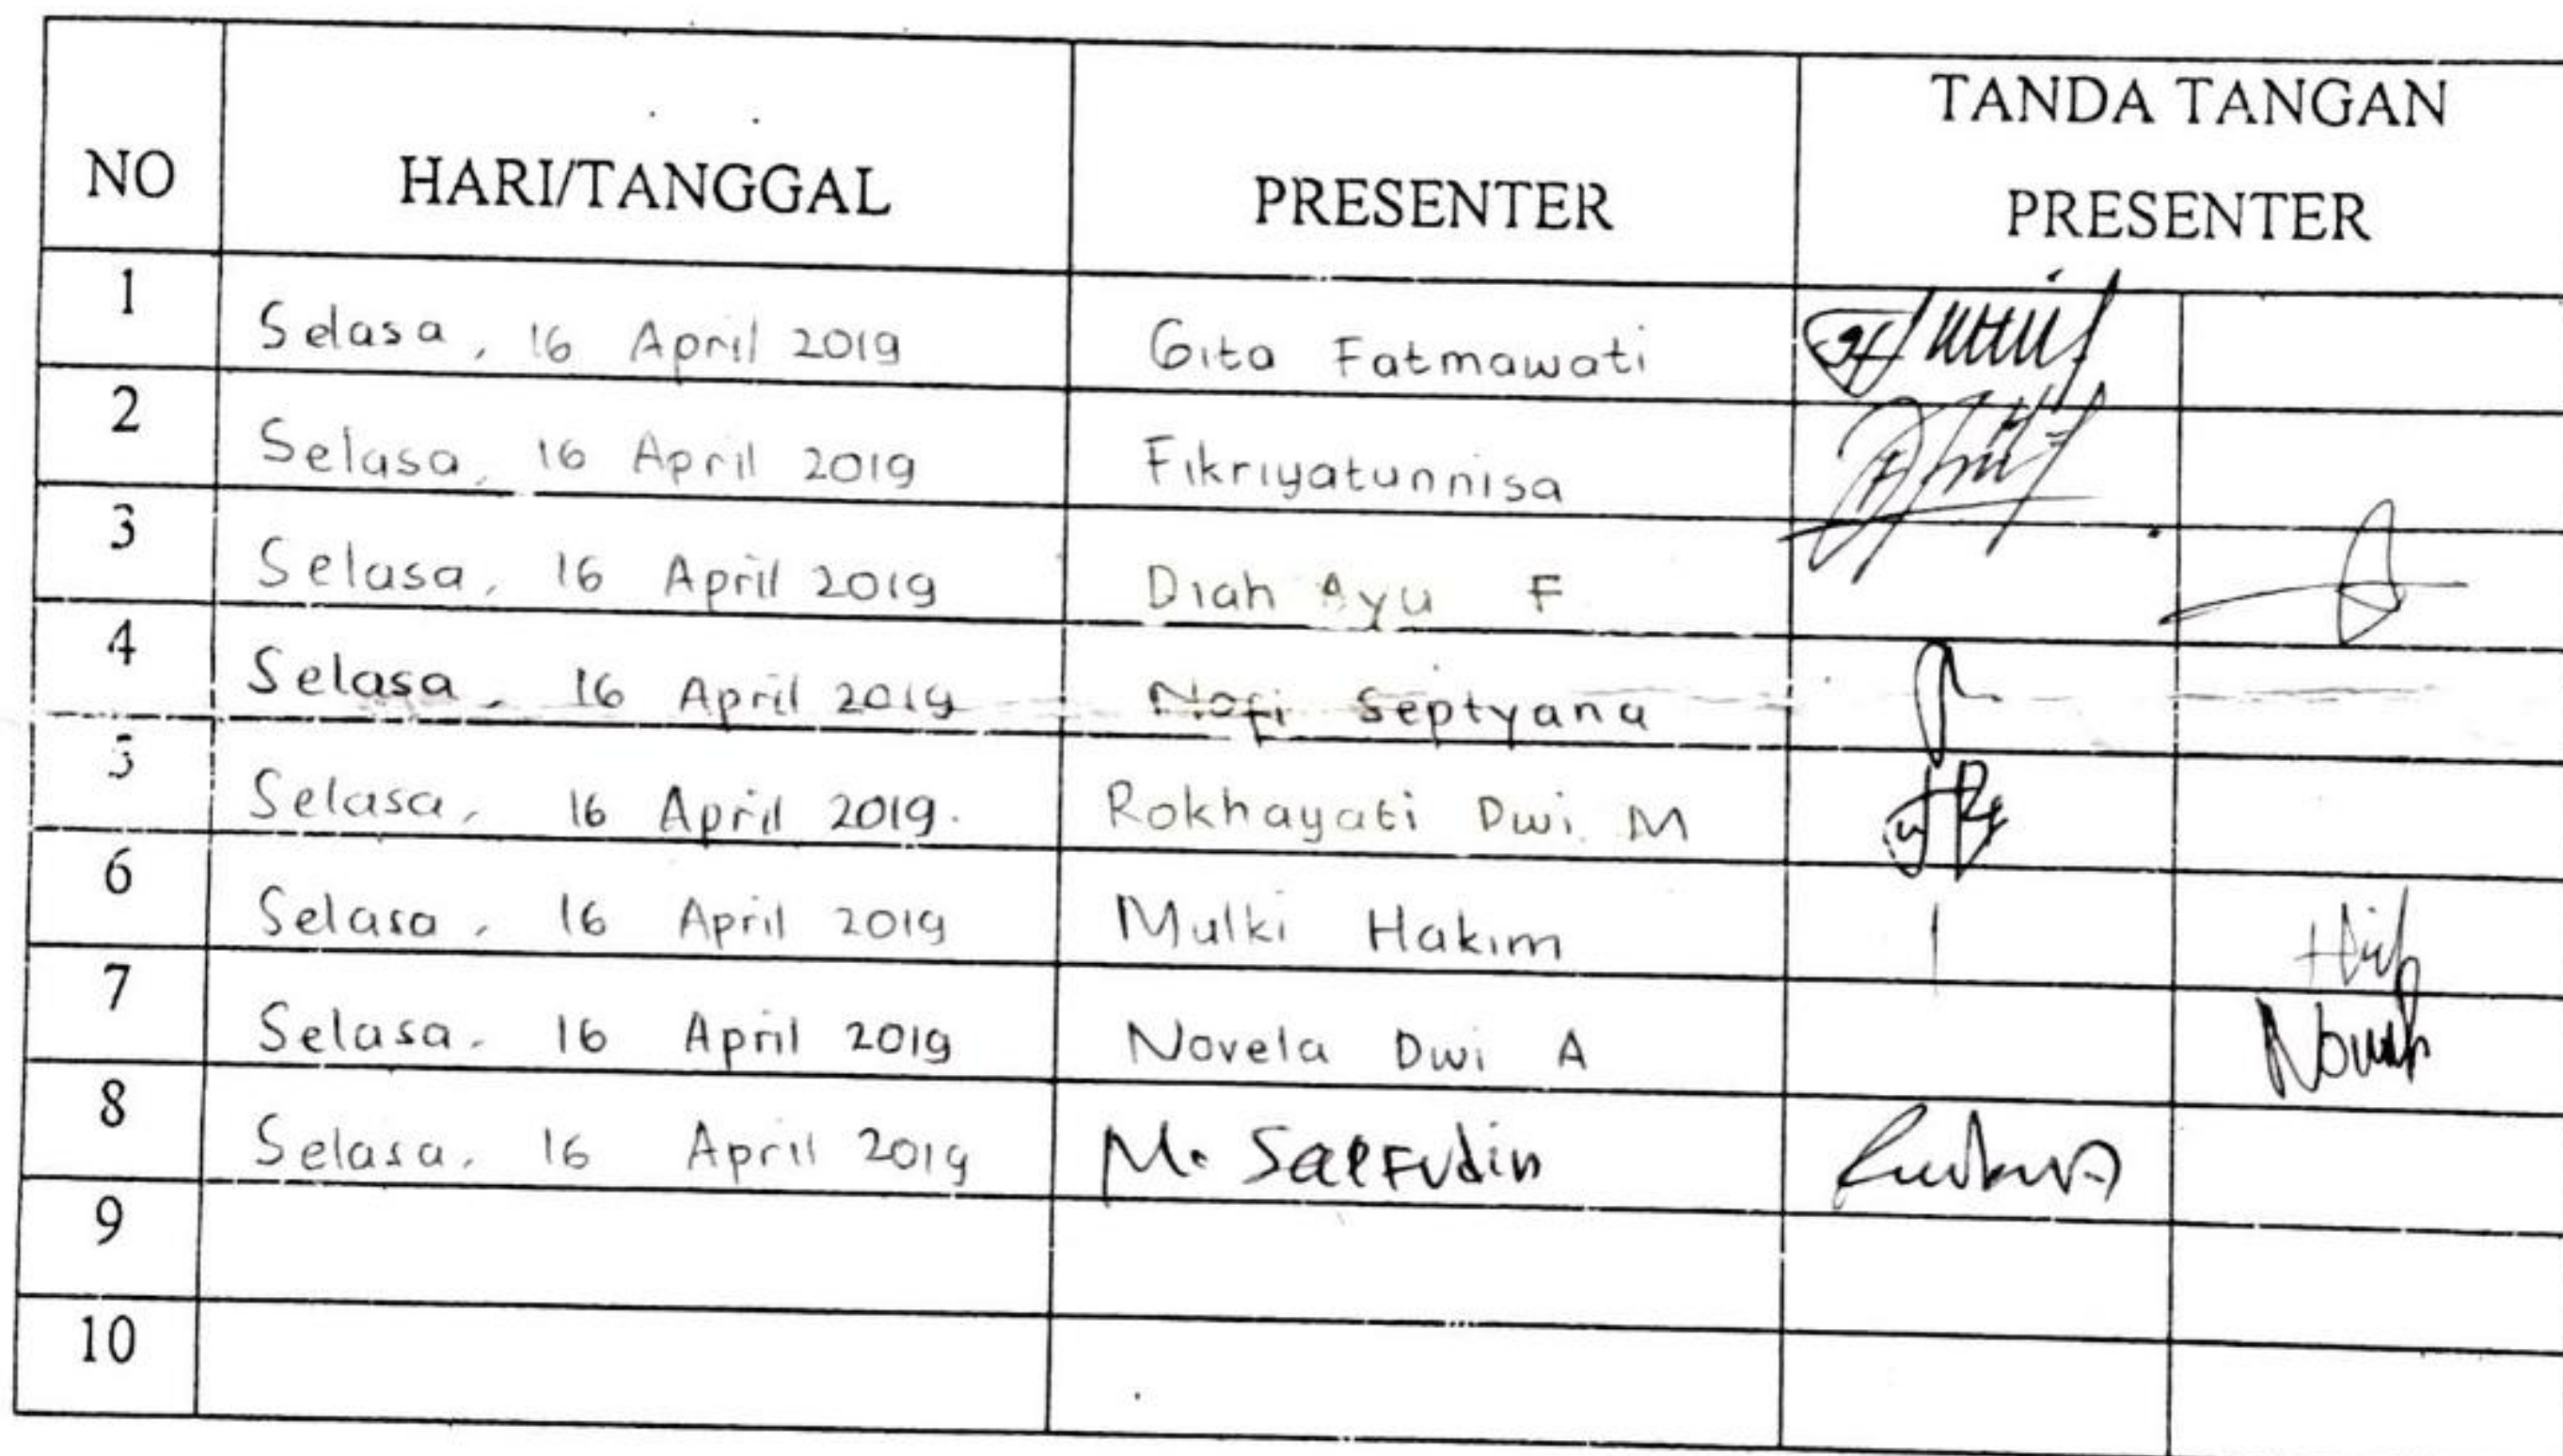 NO HARI/TANGGAL PRESENTER TANDA TANGAN PRESENTER
1 Selasa, 16 April 2019 Gita Fatmawati
2 Selasa, 16 April 2019 Fikriyatunnisa
3 Selasa, 16 April 2019 Diah Ayu F
4 Selasa, 16 April 2019 Nofi Septyana
5 Selasa, 16 April 2019. Rokhayati Dwi M
6 Selasa, 16 April 2019 Mulki Hakim
7 Selasa. 16 April 2019 Novela Dwi A
8 Selasa, 16 April 2019 M. Saefudin
9
10